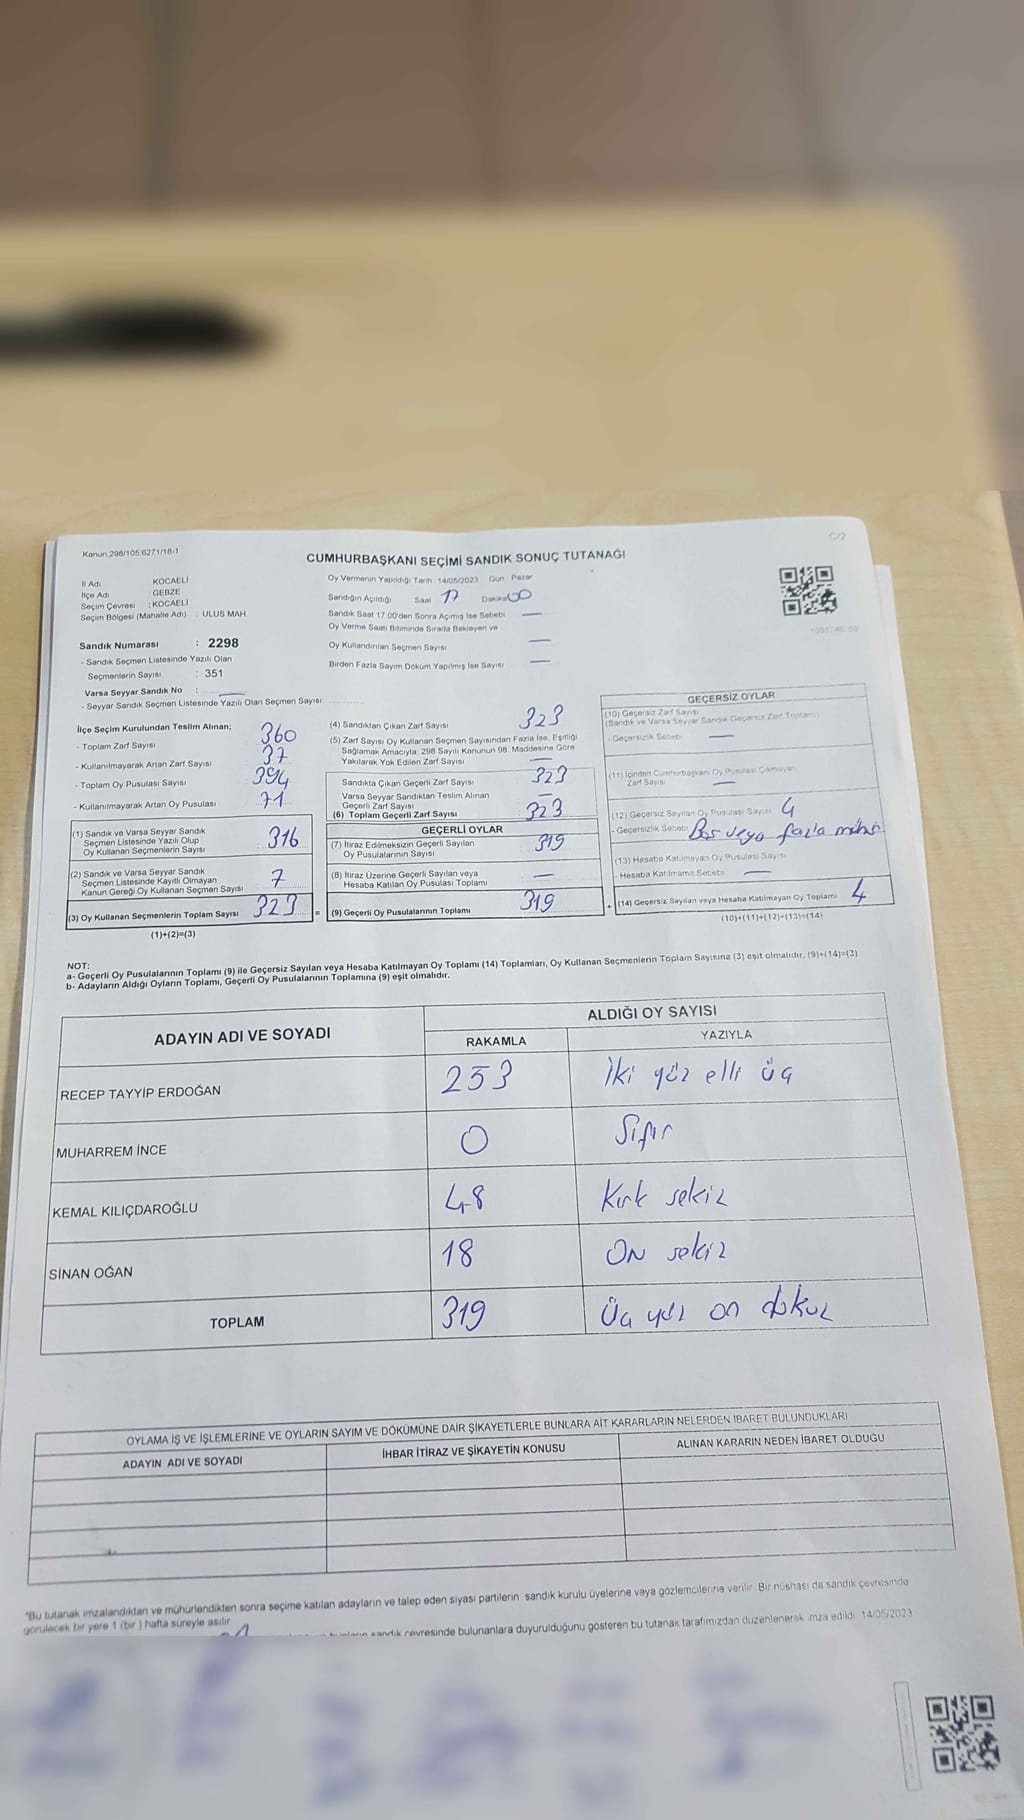 Kanun 298/105 6271/18-1
C/2
CUMHURBAŞKANI SEÇİMİ SANDIK SONUÇ TUTANAĞI
İl Adı : KOCAELİ
İlçe Adı : GEBZE
Seçim Çevresi : KOCAELİ
Seçim Bölgesi (Mahalle Adı) : ULUS MAH.
Sandık Numarası : 2298
- Sandık Seçmen Listesinde Yazılı Olan
Seçmenlerin Sayısı : 351
Varsa Seyyar Sandık No :
- Seyyar Sandık Seçmen Listesinde Yazılı Olan Seçmen Sayısı:
Oy Vermenin Yapıldığı Tarih 14/05/2023 Gün Pazar
Sandığın Açıldığı Saat 17 Dakika 00
Sandık Saat 17.00'den Sonra Açımış İse Sebebi —
Oy Verme Saati Bitiminde Sırada Bekleyen ve
Oy Kullandırılan Seçmen Sayısı —
Birden Fazla Sayım Döküm Yapılmış İse Sayısı —
İlçe Seçim Kurulundan Teslim Alınan;
- Toplam Zarf Sayısı 360
- Kullanılmayarak Artan Zarf Sayısı 37
- Toplam Oy Pusulası Sayısı 394
- Kullanılmayarak Artan Oy Pusulası 71
(1) Sandık ve Varsa Seyyar Sandık
Seçmen Listesinde Yazılı Olup
Oy Kullanan Seçmenlerin Sayısı : 316
(2) Sandık ve Varsa Seyyar Sandık
Seçmen Listesinde Kayıtlı Olmayan
Kanun Gereği Oy Kullanan Seçmen Sayısı 7
(3) Oy Kullanan Seçmenlerin Toplam Sayısı 323
(1)+(2)=(3)
(4) Sandıktan Çıkan Zarf Sayısı 323
(5) Zarf Sayısı Oy Kullanan Seçmen Sayısından Fazla İse, Eşitliği
Sağlamak Amacıyla, 298 Sayılı Kanunun 98. Maddesine Göre
Yakılarak Yok Edilen Zarf Sayısı —
Sandıkta Çıkan Geçerli Zarf Sayısı 323
Varsa Seyyar Sandıktan Teslim Alınan
Geçerli Zarf Sayısı —
(6) Toplam Geçerli Zarf Sayısı 323
GEÇERLİ OYLAR
(7) İtiraz Edilmeksizin Geçerli Sayılan
Oy Pusulalarının Sayısı 319
(8) İtiraz Üzerine Geçerli Sayılan veya
Hesaba Katılan Oy Pusulası Toplamı —
= (9) Geçerli Oy Pusulalarının Toplamı 319
GEÇERSİZ OYLAR
(10) Geçersiz Zarf Sayısı
(Sandık ve Varsa Seyyar Sandık Geçersiz Zarf Toplamı)
- Geçersizlik Sebebi —
(11) İçinden Cumhurbaşkanı Oy Pusulası Çıkmayan
Zarf Sayısı —
(12) Geçersiz Sayılan Oy Pusulası Sayısı 4
- Geçersizlik Sebebi Boş veya fazla mühür
(13) Hesaba Katılmayan Oy Pusulası Sayısı
- Hesaba Katılmama Sebebi —
+ (14) Geçersiz Sayılan veya Hesaba Katılmayan Oy Toplamı 4
(10)+(11)+(12)+(13)=(14)
NOT:
a- Geçerli Oy Pusulalarının Toplamı (9) ile Geçersiz Sayılan veya Hesaba Katılmayan Oy Toplamı (14) Toplamları, Oy Kullanan Seçmenlerin Toplam Sayısına (3) eşit olmalıdır. (9)+(14)=(3)
b- Adayların Aldığı Oyların Toplamı, Geçerli Oy Pusulalarının Toplamına (9) eşit olmalıdır.
ADAYIN ADI VE SOYADI ALDIĞI OY SAYISI
RAKAMLA YAZIYLA
RECEP TAYYİP ERDOĞAN 253 İki yüz elli üç
MUHARREM İNCE 0 Sıfır
KEMAL KILIÇDAROĞLU 48 Kırk sekiz
SİNAN OĞAN 18 ON sekiz
TOPLAM 319 Üç yüz on dokuz
OYLAMA İŞ VE İŞLEMLERİNE VE OYLARIN SAYIM VE DÖKÜMÜNE DAİR ŞİKAYETLERLE BUNLARA AİT KARARLARIN NELERDEN İBARET BULUNDUKLARI
ADAYIN ADI VE SOYADI İHBAR İTİRAZ VE ŞİKAYETİN KONUSU ALINAN KARARIN NEDEN İBARET OLDUĞU
"Bu tutanak imzalandıktan ve mühürlendikten sonra seçime katılan adayların ve talep eden siyasi partilerin sandık kurulu üyelerine veya gözlemcilerine verilir. Bir nüshası da sandık çevresinde
görülecek bir yere 1 (bir ) hafta süreyle asılır.
sandık çevresinde bulunanlara duyurulduğunu gösteren bu tutanak tarafımızdan düzenlenerek imza edildi. 14/05/2023